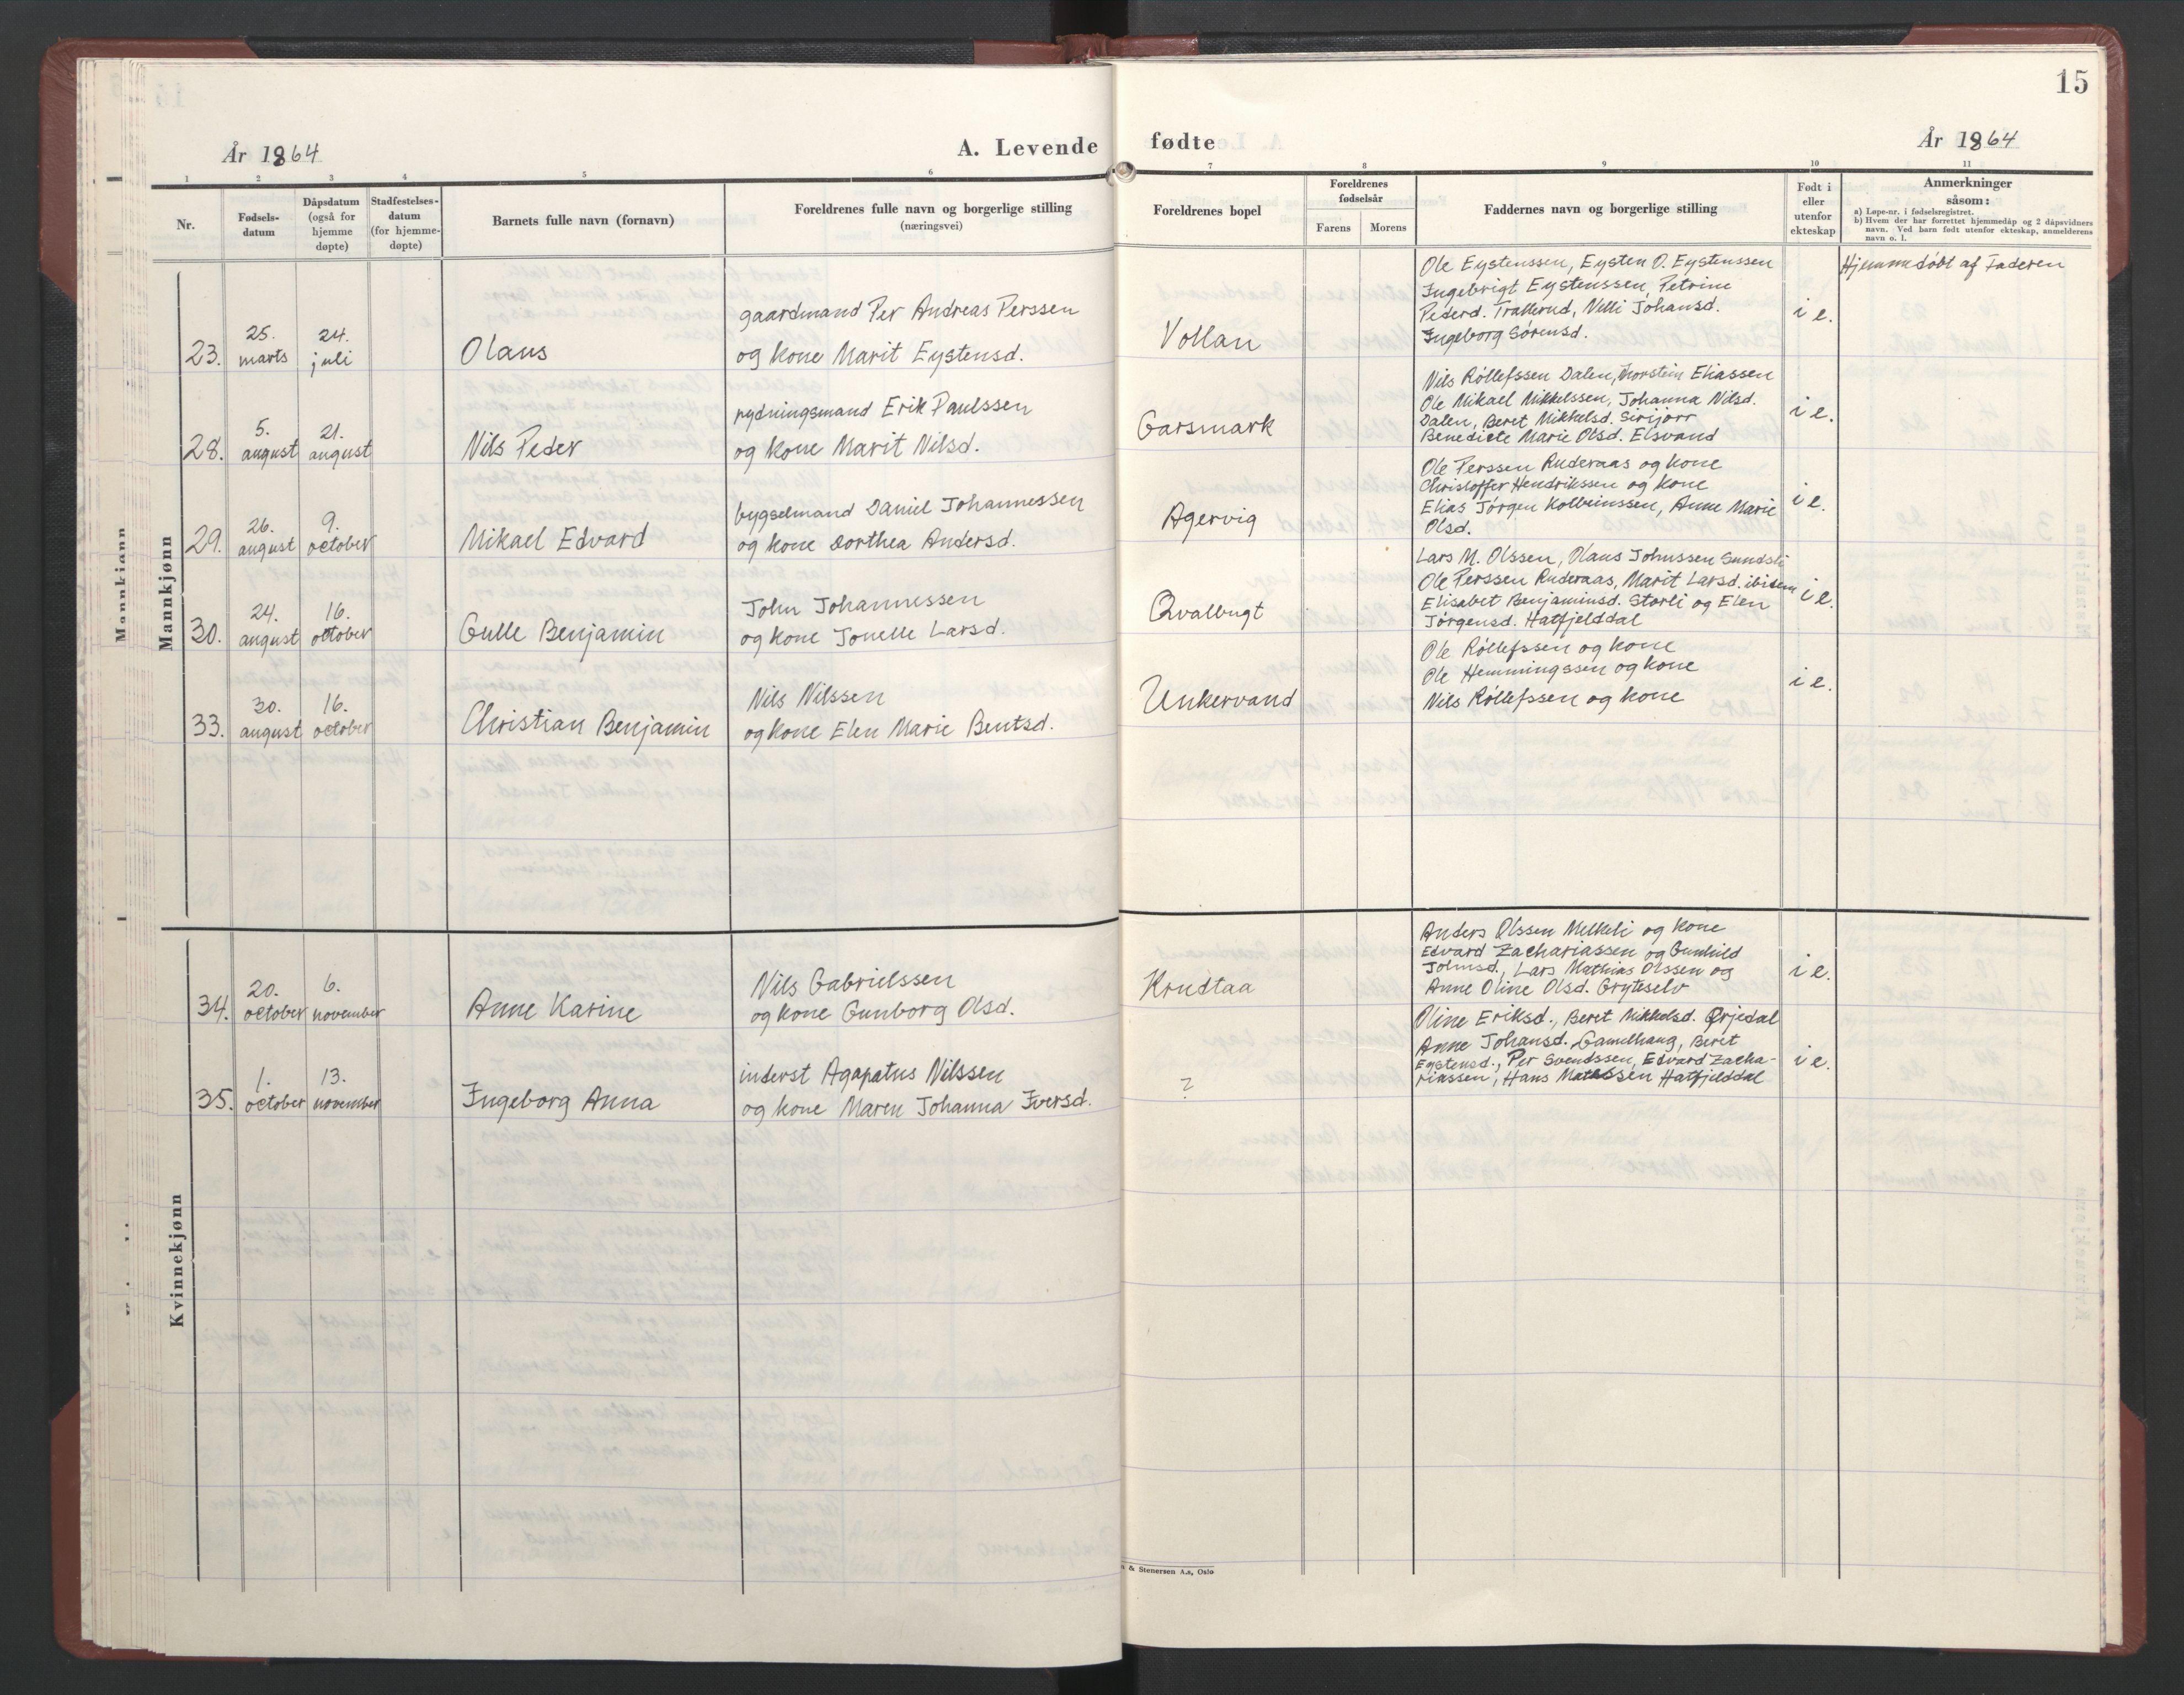 15
År 1864
A. Levende fødte
År 1864
1 2 3 4 5 6 7 8 9 10 11
Nr.
Fødsels-
datum
Dåpsdatum
(også for
hjemme
døpte)
Stadfestelses-
datum
(for hjemme-
døpte)
Barnets fulle navn (fornavn)
Foreldrenes fulle navn og borgerlige stilling
(næringsvei)
Foreldrenes bopel
Foreldrenes
fødselsår
Farens
Morens
Faddernes navn og borgerlige stilling
Født i
eller
utenfor
ekteskap
Anmerkninger
såsom:
a) Løpe-nr. i fødselsregistret.
b) Hvem der har forrettet hjemmedåp og 2 dåpsvidners
navn. Ved barn født utenfor ekteskap, anmelderens
navn o. l.
Mannkjønn
Mannkjønn
23.
25.
marts
24.
juli
Olaus
gaardmand Per Andreas Perssen
og kone Marit Eystensd.
Vollan
Ole Eystenssen, Eysten O. Eystenssen
Ingebrigt Eystenssen, Petrine
Pedersd. Trallerud, Nelli Johansd.
Ingeborg Sørensd.
i e.
Hjemmedöbt af Faderen
28.
5.
august
21.
august
Nils Peder
rydningsmand Erik Paulssen
og kone Marit Nilsd.
Garsmark
Nils Röllefssen Dalen, Thorstein Eliassen
Ole Mikael Mikkelssen, Johanna Nilsd.
Dalen, Beret Mikkelsd. Sirijorr
Benedicte Marie Olsd. Elsvand
i e.
29.
26.
august
9.
october
Mikael Edvard
bygselmand Daniel Johannessen
og kone Dorthea Andersd.
Agervig
Ole Perssen Ruderaas og kone
Christoffer Hendrikssen og kone
Elias Jørgen Kolbeinssen, Anne Marie
Olsd.
i e.
30.
24.
august
16.
october
Gulle Benjamin
John Johannessen
og kone Jonelle Larsd.
Qvalbugt
Lars M. Olssen, Olaus Johnssen Sundsli
Ole Perssen Ruderaas, Marit Larsd. ibidem
Elisabet Benjaminsd. Storli og Elen
Jørgensd. Hatfjelddal
i e.
33.
30.
august
16.
october
Christian Benjamin
Nils Nilssen
og kone Elen Marie Bentsd.
Unkervand
Ole Röllefssen og kone
Ole Hemmingssen og kone
Nils Röllefssen og kone
i e.
Kvinnekjønn
34.
20.
october
6.
november
Anne Karine
Nils Gabrielssen
og kone Gunborg Olsd.
Krudtaa
Anders Olssen Melkeli og kone
Edvard Zachariassen og Gunhild
Johnsd., Lars Mathias Olssen og
Anne Oline Olsd. Gryteselv
i e.
35.
1.
october
13.
november
Ingeborg Anna
inderst Agapatus Nilssen
og kone Maren Johanna Iversd.
?
Oline Eriksd., Beret Mikkelsd. Ørjedal
Anne Johansd. Gamelhaug, Beret
Eystensd., Per Svendssen, Edvard Zacha-
riassen, Hans Matassen Hatfjelddal
i e.
& Stenersen A.s, Oslo